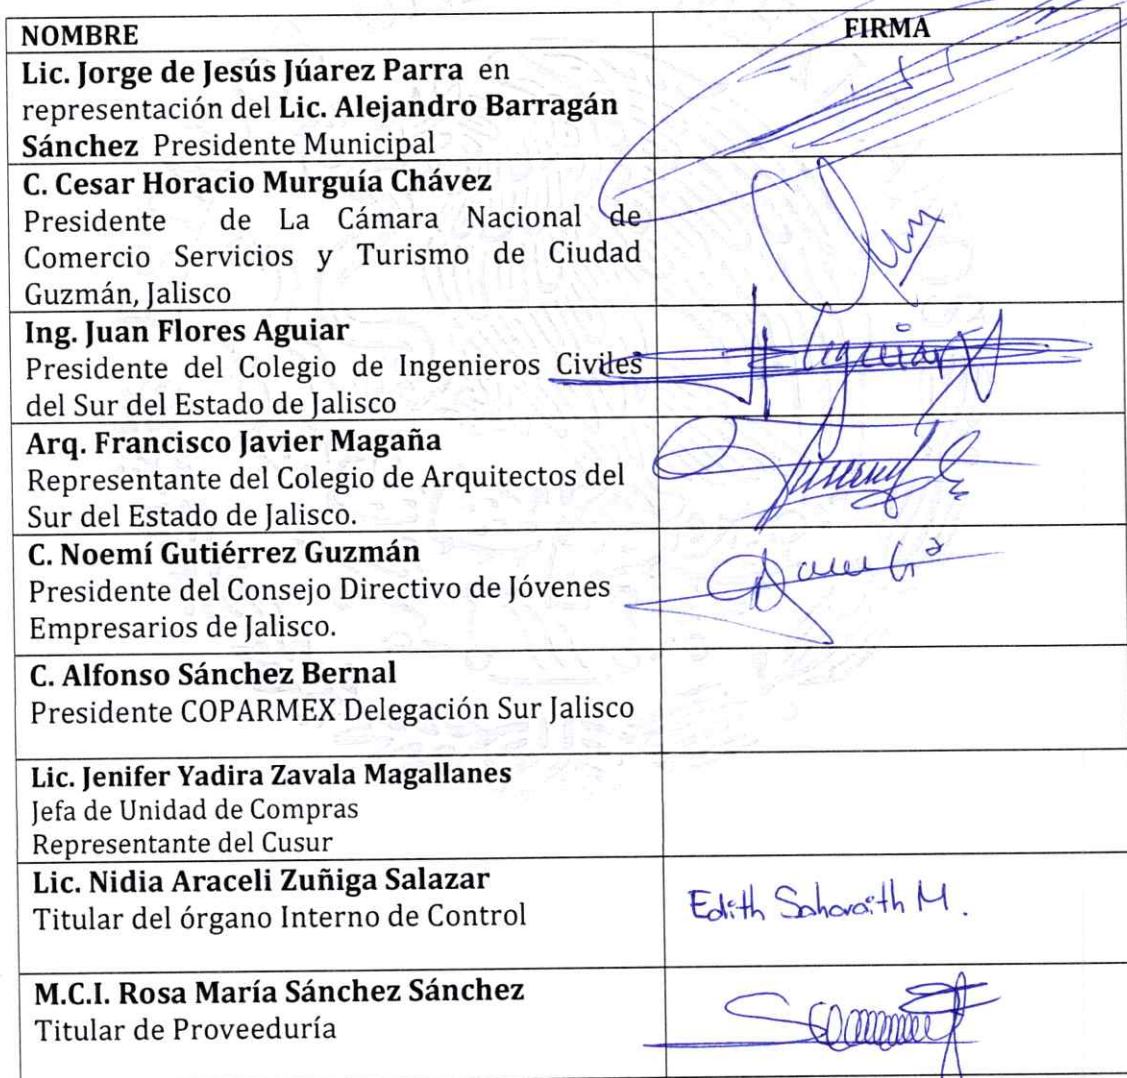 NOMBRE FIRMA
Lic. Jorge de Jesús Júarez Parra en
representación del Lic. Alejandro Barragán
Sánchez Presidente Municipal
C. Cesar Horacio Murguía Chávez
Presidente de La Cámara Nacional de
Comercio Servicios y Turismo de Ciudad
Guzmán, Jalisco
Ing. Juan Flores Aguiar
Presidente del Colegio de Ingenieros Civiles
del Sur del Estado de Jalisco
Arq. Francisco Javier Magaña
Representante del Colegio de Arquitectos del
Sur del Estado de Jalisco.
C. Noemí Gutiérrez Guzmán
Presidente del Consejo Directivo de Jóvenes
Empresarios de Jalisco.
C. Alfonso Sánchez Bernal
Presidente COPARMEX Delegación Sur Jalisco
Lic. Jenifer Yadira Zavala Magallanes
Jefa de Unidad de Compras
Representante del Cusur
Lic. Nidia Araceli Zuñiga Salazar
Titular del órgano Interno de Control
Edith Saharaith M.
M.C.I. Rosa María Sánchez Sánchez
Titular de Proveeduría